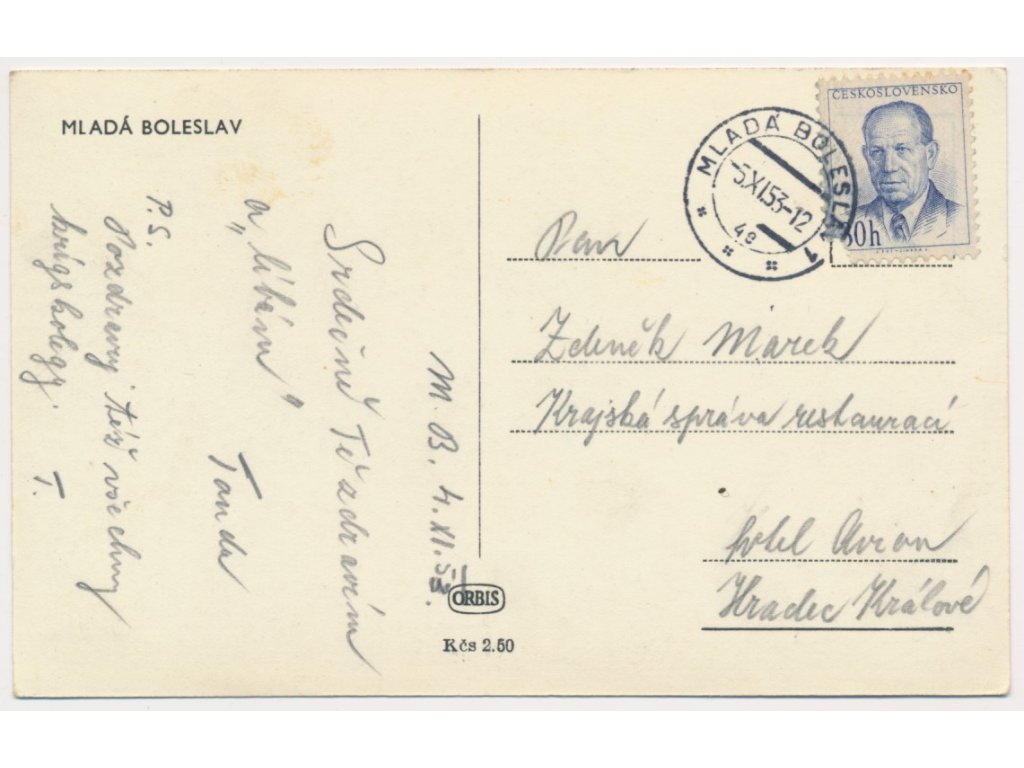 MLADÁ BOLESLAV
M. B. 4. XI. 53.
Srdečně Tě zdravím
a „líbám"
Tanda
P.S.
Pozdravuj též všechny
kolegy.
T.
ORBIS
Kčs 2.50
ČESKOSLOVENSKO
30h
MLADÁ BOLESLAV 1
5.XI.53-12
Pan
Zdeněk Marek
Krajská správa restaurací
hotel Avion
Hradec Králové